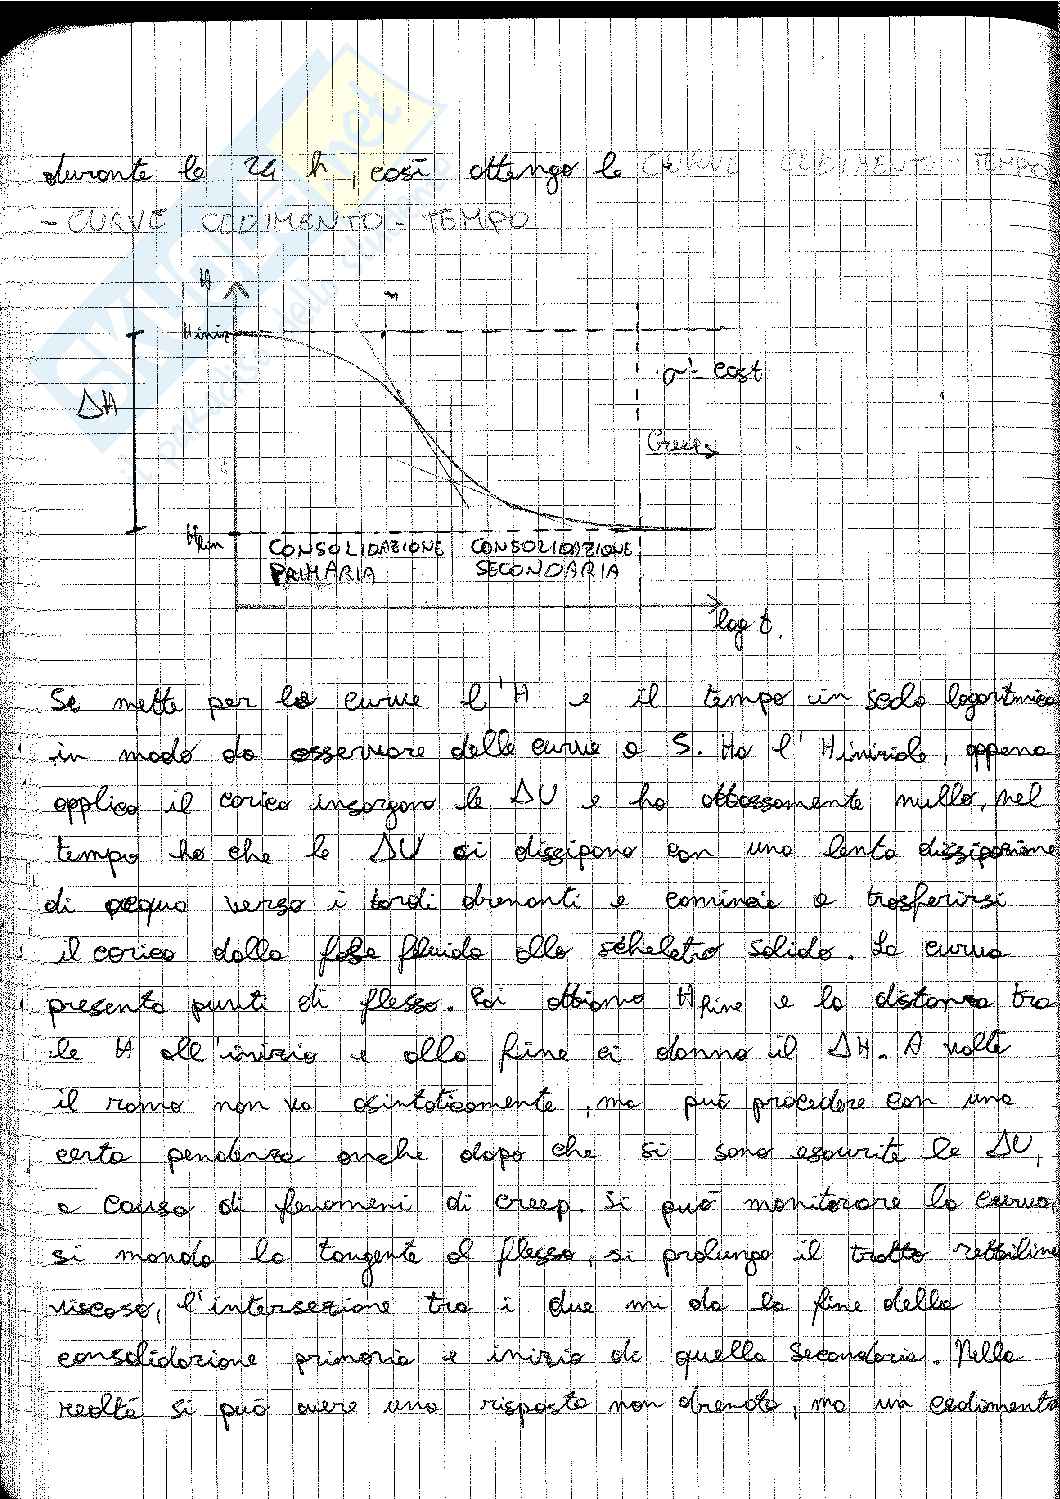 durante le 24 h, così ottengo le CURVE CEDIMENTO - TEMPO
- CURVE CEDIMENTO - TEMPO
H
Hiniz
σ' = cost
ΔH
Creep
Hfin
CONSOLIDAZIONE PRIMARIA
CONSOLIDAZIONE SECONDARIA
log t.
Se mette per la curve l'H e il tempo in scala logaritmica
in modo da osservare delle curve a S. Ho l'Hiniziale, appena
applico il carico insorgono le ΔU e ho abbassamento nullo, nel
tempo ho che le ΔU si dissipano con una lenta dissipazione
di acqua verso i bordi drenanti e comincia a trasferirsi
il carico dalla fase fluida allo scheletro solido. La curva
presenta punti di flesso. Poi abbiamo Hfine e la distanza tra
le H all'inizio e alla fine ci danno il ΔH. A volte
il ramo non va asintoticamente, ma può procedere con una
certa pendenza anche dopo che si sono esaurite le ΔU,
a causa di fenomeni di creep. Si può monitorare la curva,
si manda la tangente al flesso, si prolunga il tratto rettilineo
viscoso, l'intersezione tra i due mi da la fine della
consolidazione primaria e inizio di quella secondaria. Nella
realtà si può avere una risposta non drenata, ma un cedimento